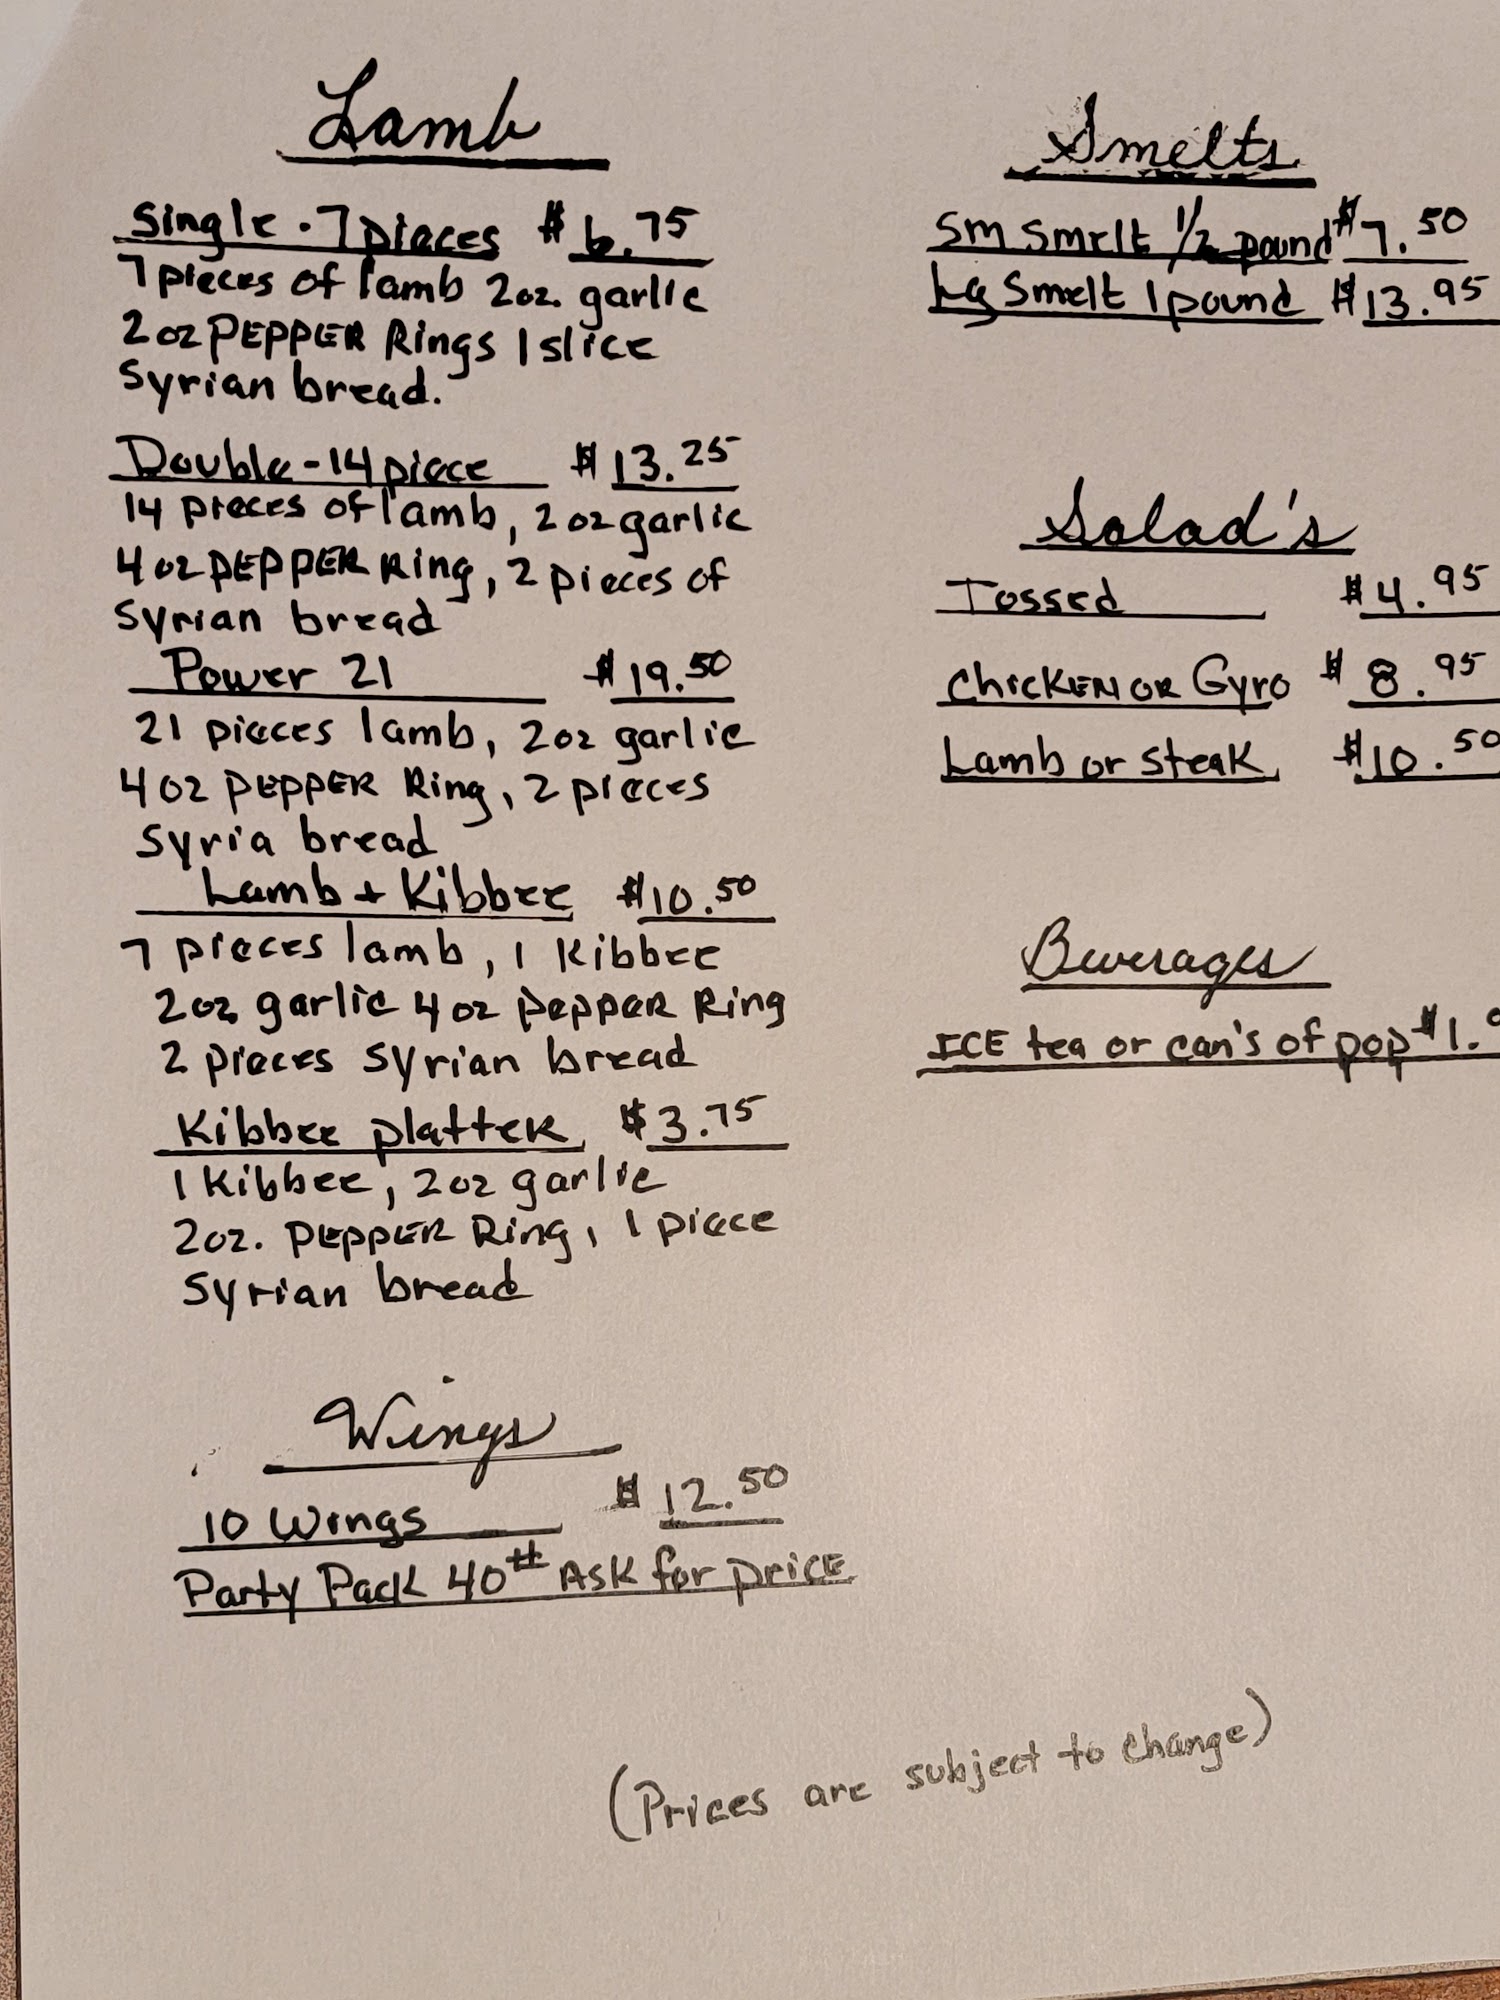 Lamb
Single - 7 pieces $6.75
7 pieces of lamb 2oz. garlic
2oz PEPPER Rings 1 slice
Syrian bread.
Double - 14 piece $13.25
14 pieces of lamb, 2oz garlic
4oz PEPPER Ring, 2 pieces of
Syrian bread
Power 21 $19.50
21 pieces lamb, 2oz garlic
4oz PEPPER Ring, 2 pieces
Syria bread
Lamb + Kibbee $10.50
7 pieces lamb, 1 Kibbee
2oz garlic 4oz Pepper Ring
2 pieces Syrian bread
Kibbee platter $3.75
1 Kibbee, 2oz garlic
2oz. PEPPER Ring, 1 piece
Syrian bread
Wings
10 Wings $12.50
Party Pack 40tt ASK for price
Smelts
Sm Smelt 1/2 pound $7.50
Lg Smelt 1 pound $13.95
Salad's
Tossed $4.95
Chicken or Gyro $8.95
Lamb or Steak $10.50
Beverages
ICE tea or can's of pop $1.
(Prices are subject to change)